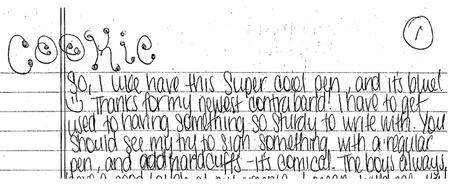 Cookie
1
So, I like have this super cool pen, and it's blue!
Thanks for my newest contraband! I have to get
used to having something so sturdy to write with. You
should see my try to sign something with a regular
pen, and add handcuffs - it's comical. The boys always,